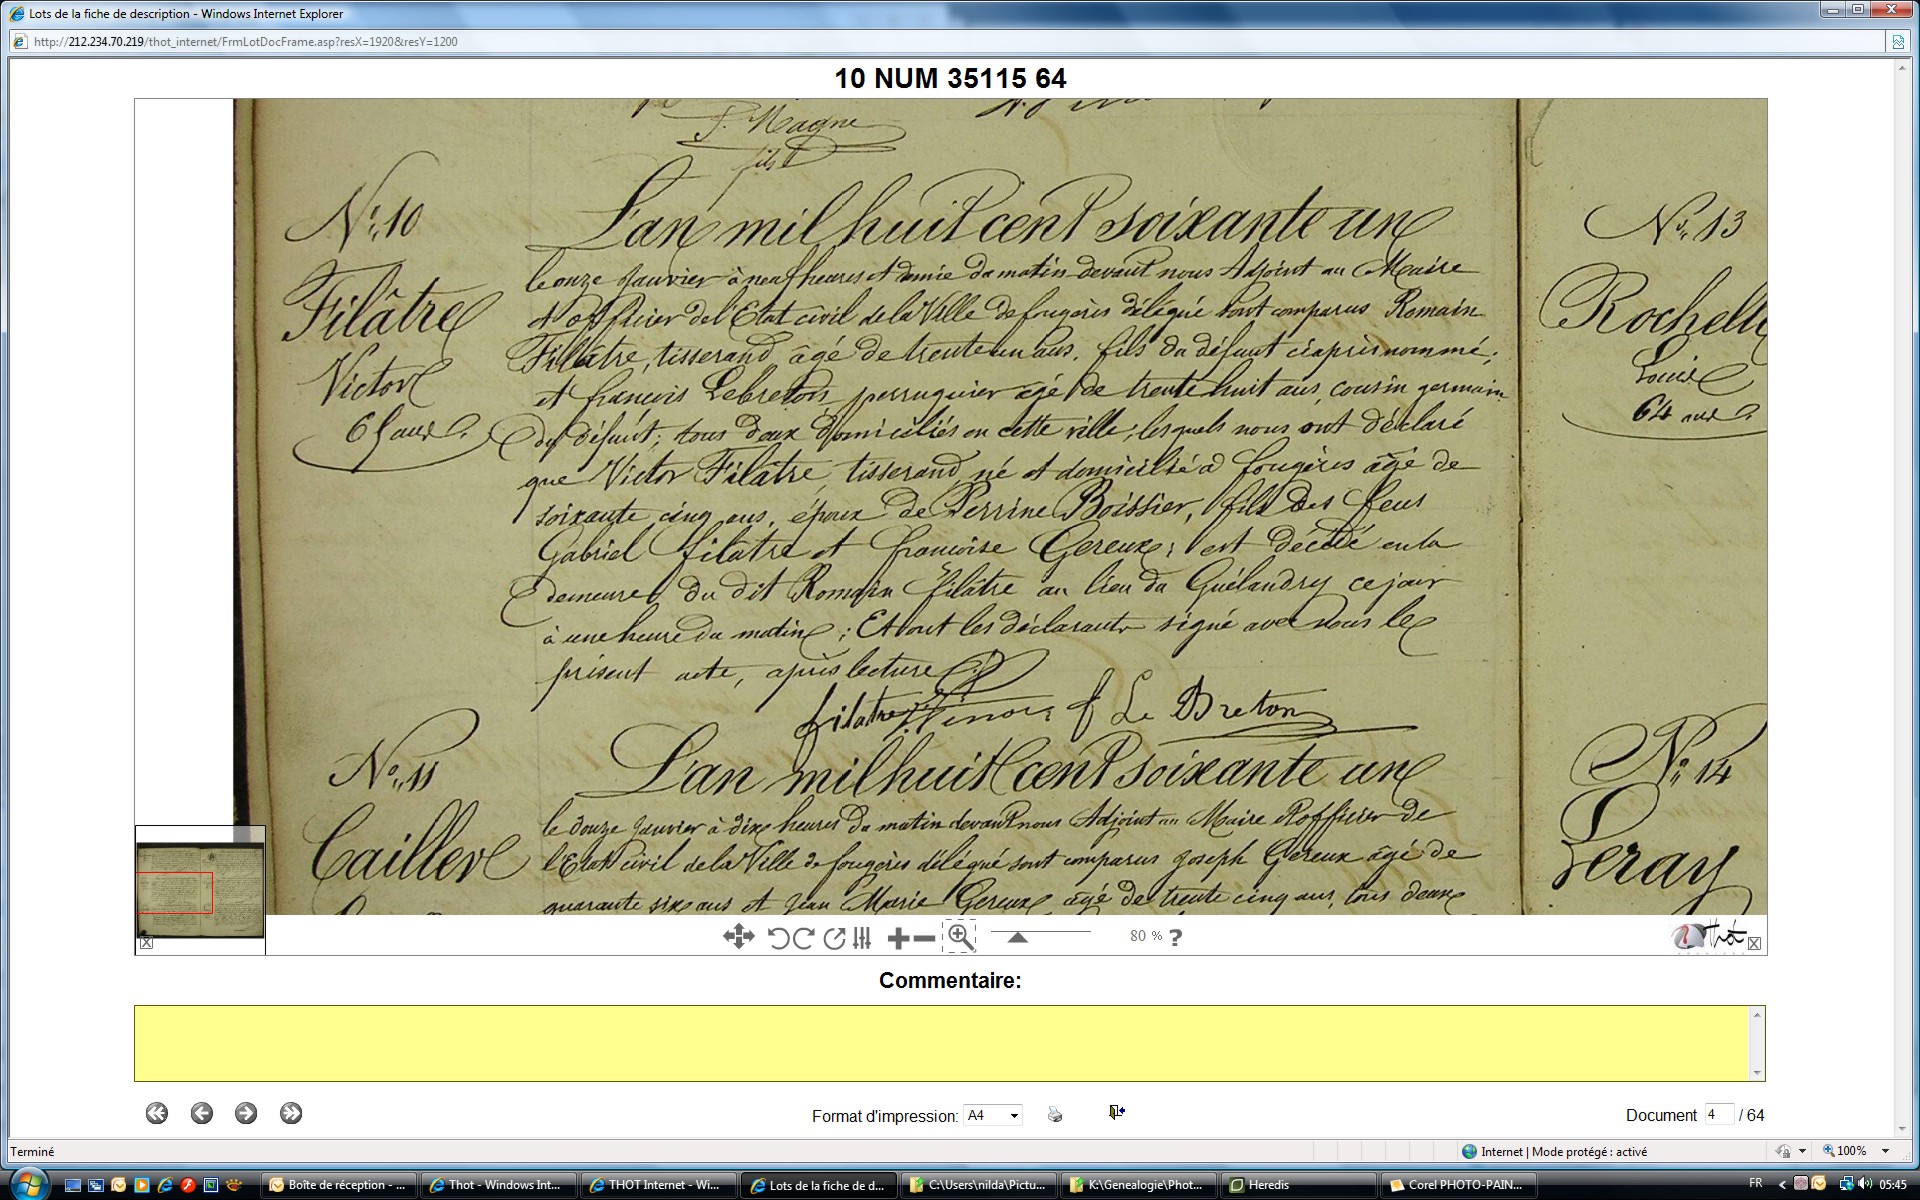 Lots de la fiche de description - Windows Internet Explorer
http://212.234.70.219/thot_internet/FrmLotDocFrame.asp?resX=1920&resY=1200
10 NUM 35115 64
J. Magne
fils
N° 10
Filâtre
Victor
65 ans
L'an mil huit cent soixante un
le onze janvier à neuf heures et demie du matin devant nous Adjoint au Maire
et officier de l'Etat civil de la Ville de fougères délégué sont comparus Romain
Filâtre, tisserand, âgé de trente un ans, fils du défunt ci après nommé;
et françois Lebreton, perruquier âgé de trente huit ans, cousin germain
du défunt; tous deux domiciliés en cette ville; lesquels nous ont déclaré
que Victor Filâtre, tisserand, né et domicilié à fougères âgé de
soixante cinq ans, époux de Perrine Boissier, fils des feus
Gabriel filâtre et françoise Gereux; est décédé en la
demeure du dit Romain filâtre au lieu du Guélandry ce jour
à une heure du matin; Et ont les déclarants signé avec nous le
présent acte, après lecture
filatre f Le Breton
N° 11
Cailler
L'an mil huit cent soixante un
le douze janvier à dix heures du matin devant nous Adjoint au Maire et officier de
l'Etat civil de la Ville de fougères délégué sont comparus joseph Gereux âgé de
quarante six ans et jean Marie Gereux âgé de trente cinq ans, tous deux
N° 13
Rochell
Louise
64 ans
N° 14
Leray
80 % ?
Thot
Commentaire:
Format d'impression: A4
Document 4 / 64
Terminé
Internet | Mode protégé : activé
100%
Boîte de réception - ...
Thot - Windows Int...
THOT Internet - Wi...
Lots de la fiche de d...
C:\Users\nilda\Pictu...
K:\Genealogie\Phot...
Heredis
Corel PHOTO-PAIN...
FR
05:45